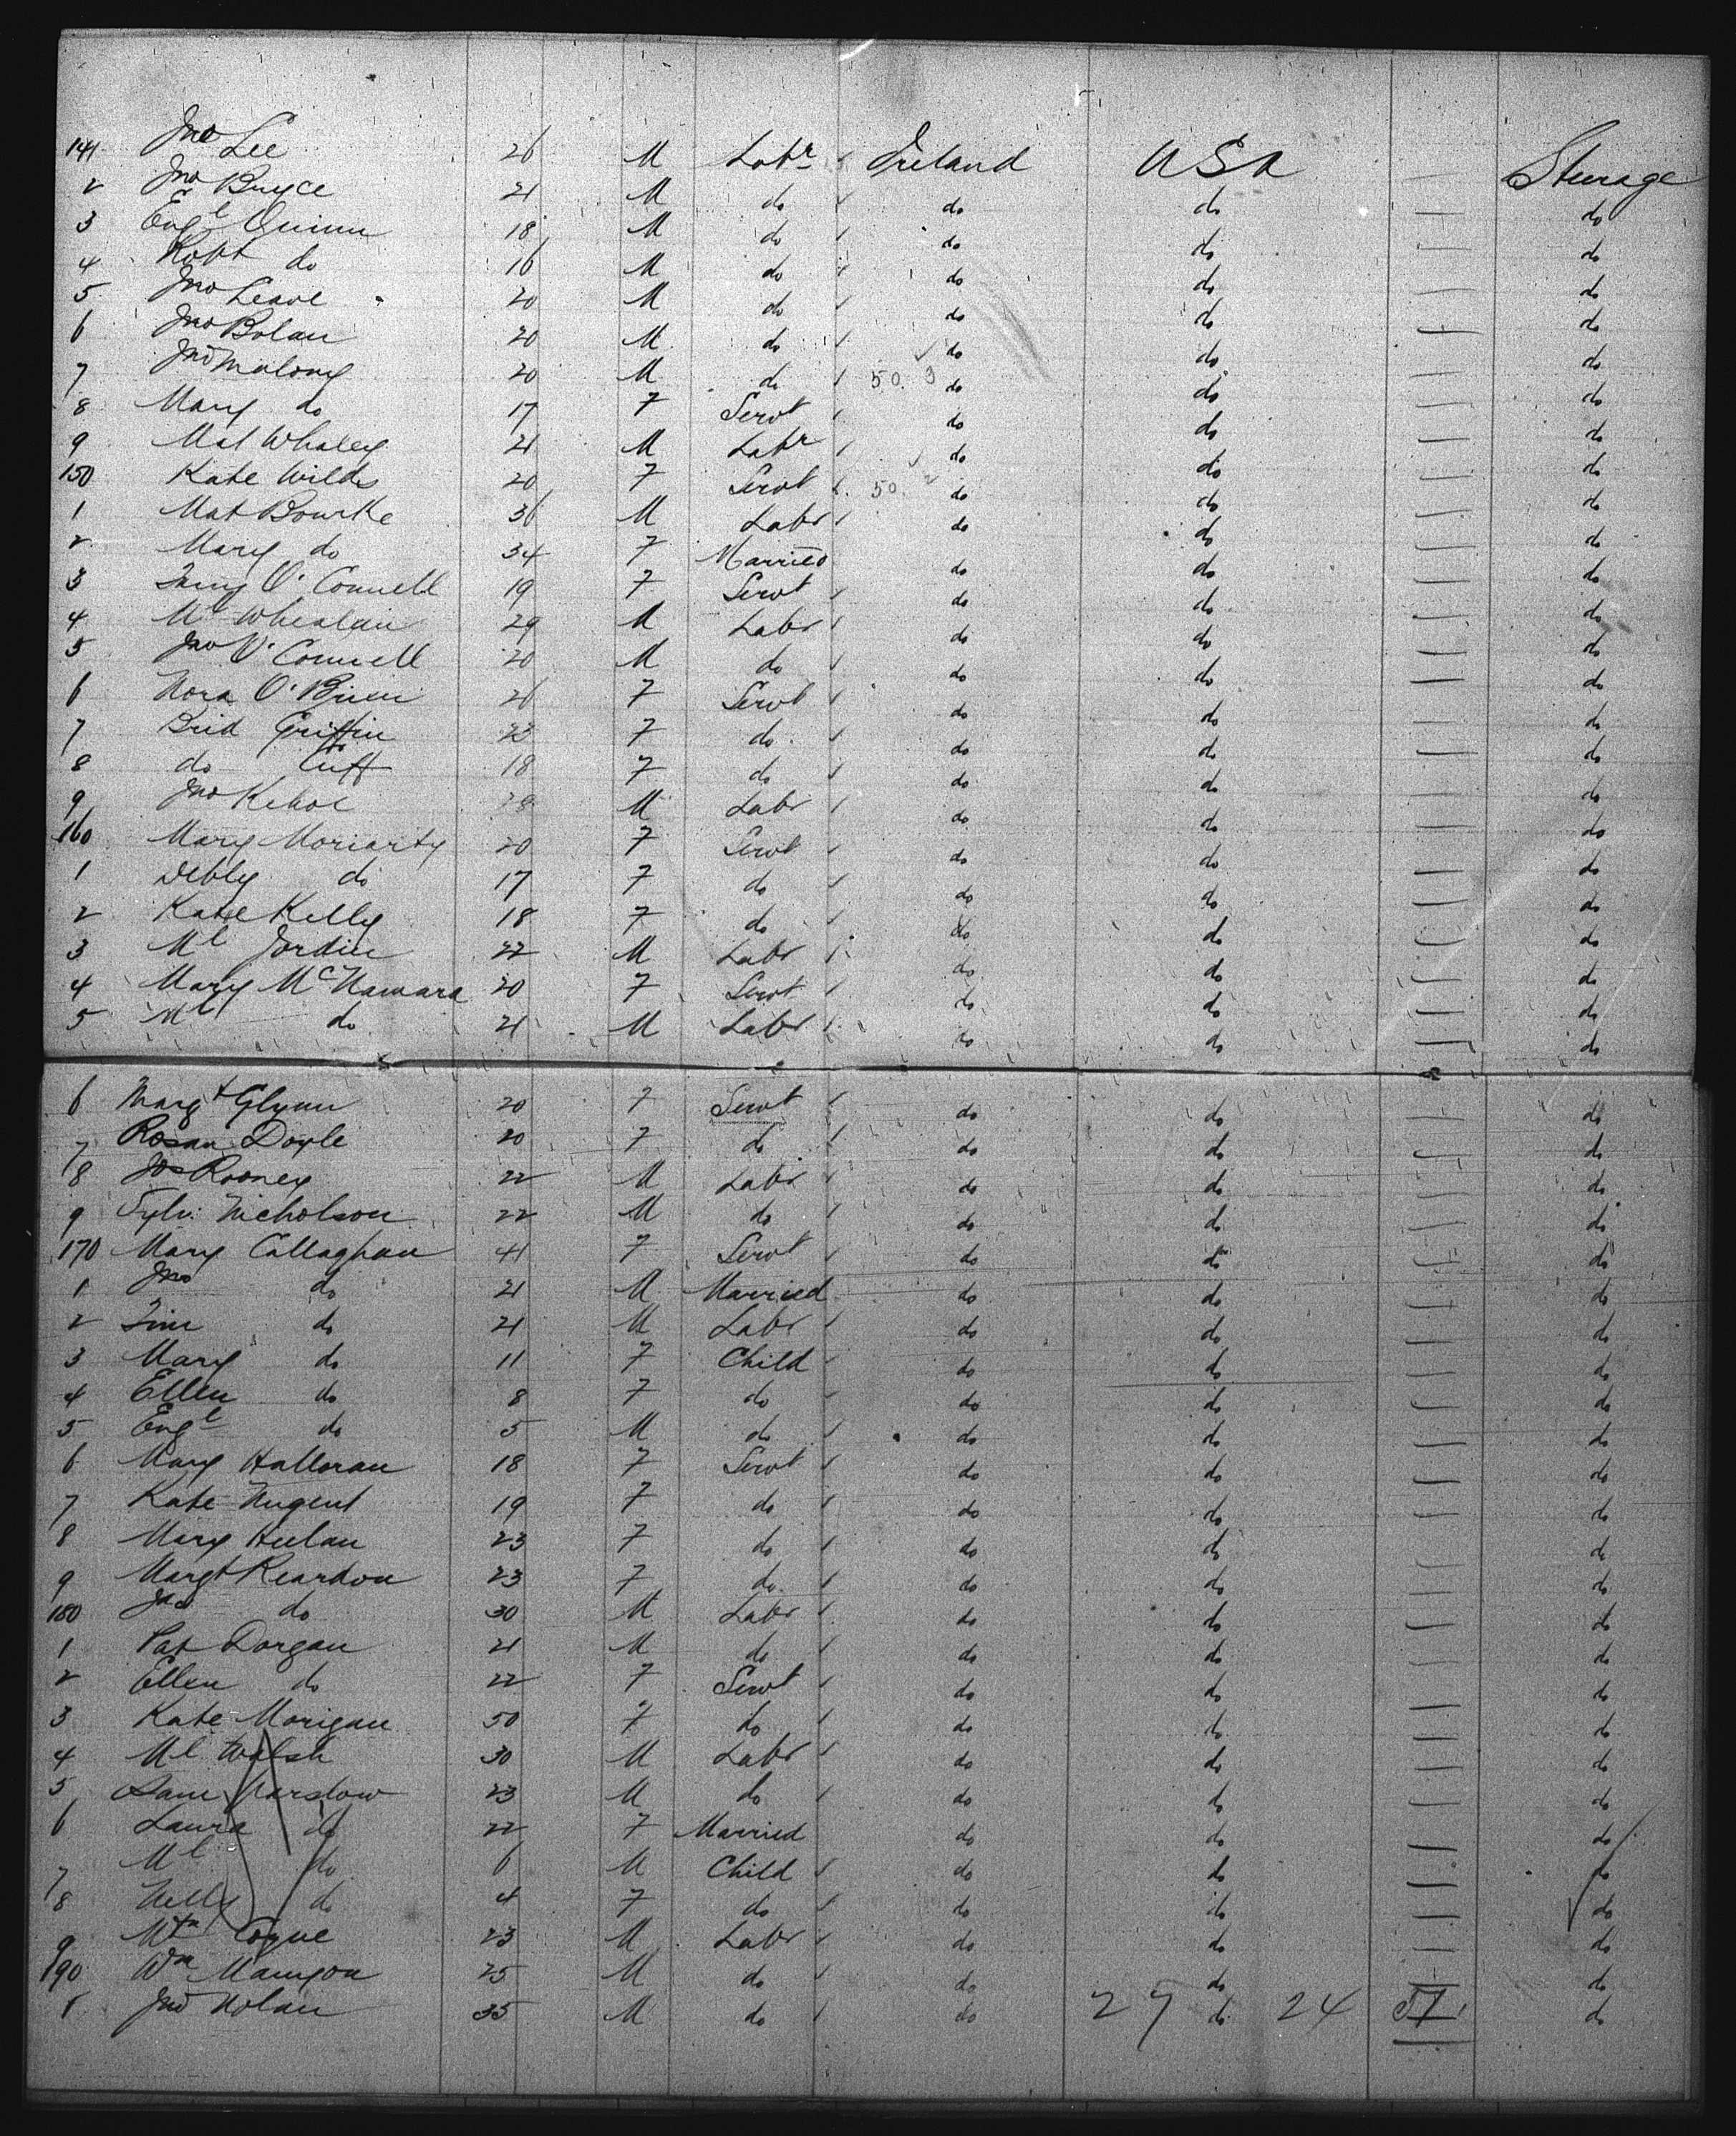 141 Jno Lee 26 M Labr Ireland USA Steerage
2 Jno Bryce 21 M do do do do
3 Eugl Quinn 18 M do do do do
4 Robt do 16 M do do do do
5 Jno Leave 20 M do do do do
6 Jno Bolan 20 M do do do do
7 Jno Malony 20 M do 50. 3 do do do
8 Mary do 17 F Servt do do do
9 Mat Whaley 21 M Labr do do do
150 Kate Wilds 20 F Servt 50. 2 do do do
1 Mat Bourke 36 M Labr do do do
2 Mary do 34 F Married do do do
3 O'Connell 19 F Servt do do do
4 Ml Whealan 29 M Labr do do do
5 Jno O'Connell 20 M do do do do
6 Nora O'Brien 26 F Servt do do do
7 Brid Griffin 23 F do do do do
8 do Cuff 18 F do do do do
9 Jno Kehoe 28 M Labr do do do
160 Mary Moriarty 20 F Servt do do do
1 Debly do 17 F do do do do
2 Kate Kelly 18 F do do do do
3 Ml Jordin 22 M Labr do do do
4 Mary McNamara 20 F Servt do do do
5 Ml do 21 M Labr do do do
6 Margt Glynn 20 F Servt do do do
7 Rosan Doyle 20 F do do do do
8 Jos Rooney 22 M Labr do do do
9 Sylv. Nicholson 22 M do do do do
170 Mary Callaghan 41 F Servt do do do
1 Jno do 21 M Married do do do
2 Tim do 21 M Labr do do do
3 Mary do 11 F Child do do do
4 Ellen do 8 F do do do do
5 Eugl do 5 M do do do do
6 Mary Halloran 18 F Servt do do do
7 Kate Nugent 19 F do do do do
8 Mary Heelan 23 F do do do do
9 Margt Reardon 23 F do do do do
180 Jas do 30 M Labr do do do
1 Pat Dorgan 21 M do do do do
2 Ellen do 22 F Servt do do do
3 Kate Morigan 50 F do do do do
4 Ml Walsh 30 M Labr do do do
5 Sam Varslow 23 M do do do do
6 Laura do 22 F Married do do do
7 Ml do 6 M Child do do do
8 Nelly do 4 F do do do do
9 Mtn Cogue 23 M Labr do do do
190 Wm Mangon 25 M do do do do
1 Jno Nolan 35 M do do 27 do 24 51 do